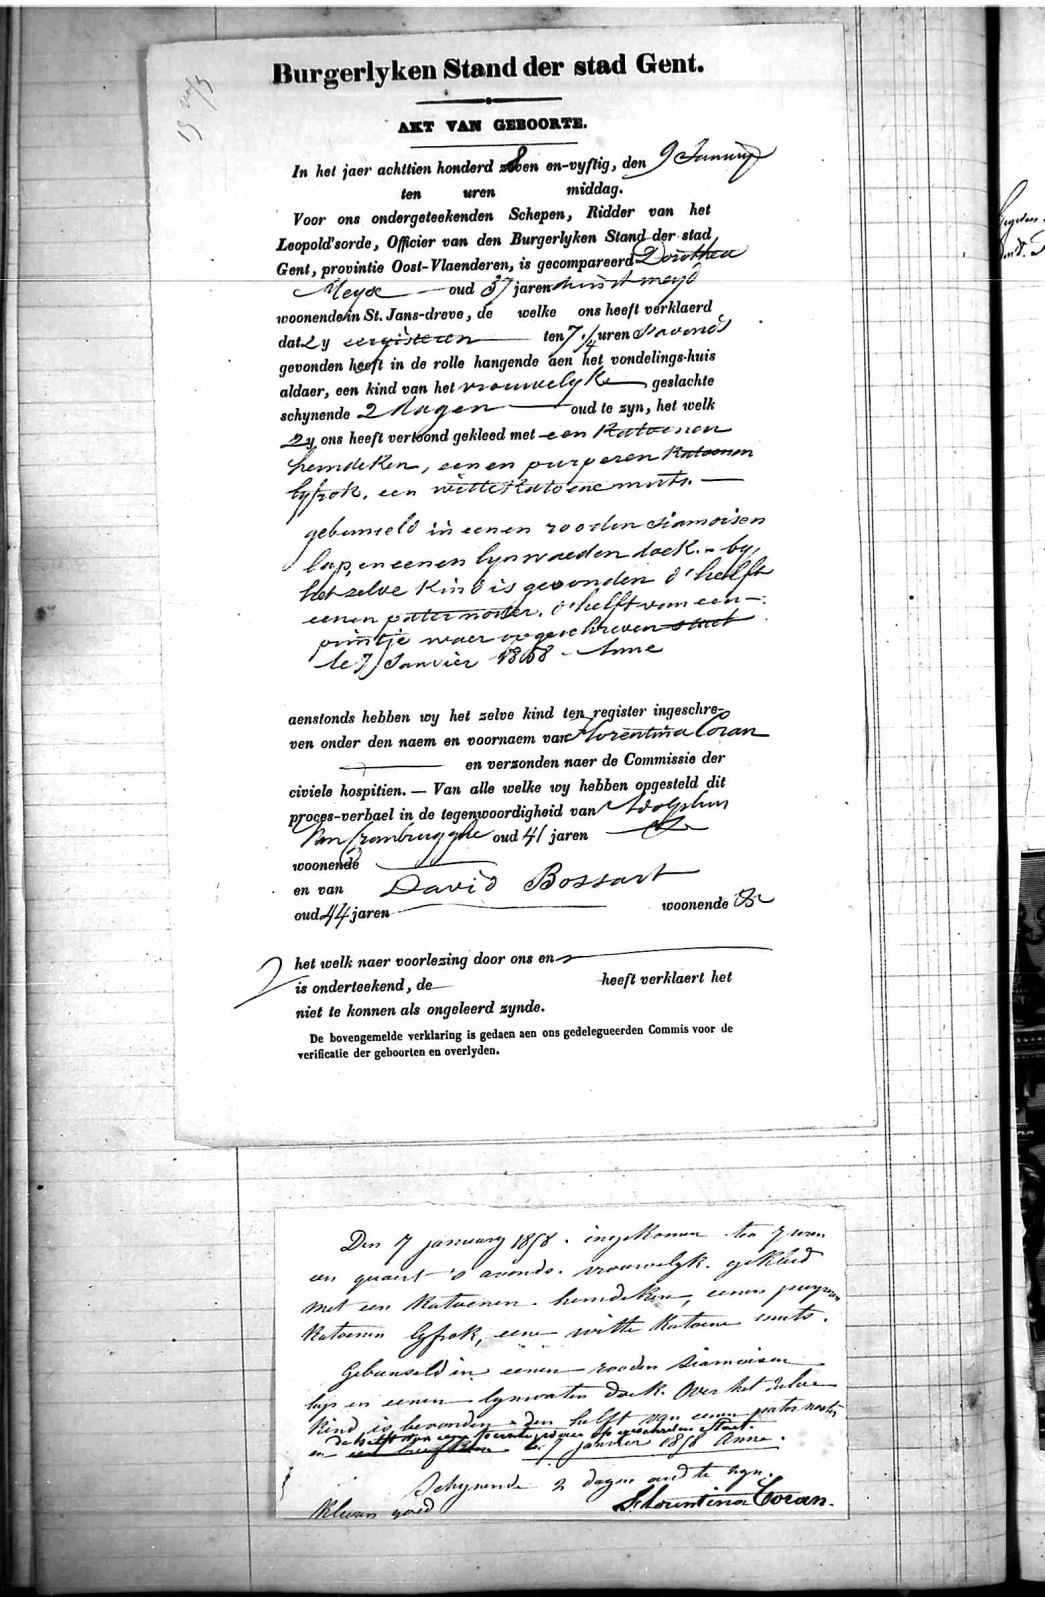 Burgerlyken Stand der stad Gent.
AKT VAN GEBOORTE.
In het jaer achttien honderd 8 en-vyftig, den 9 January
ten uren middag.
Voor ons ondergeteekenden Schepen, Ridder van het
Leopold'sorde, Officier van den Burgerlyken Stand der stad
Gent, provintie Oost-Vlaenderen, is gecompareerd Dorothea
oud 37 jaren
woonende in St. Jans-dreve, de welke ons heeft verklaerd
dat zy eergisteren ten 7 1/4 uren s'avonds
gevonden heeft in de rolle hangende aen het vondelings-huis
aldaer, een kind van het vrouwelyk geslachte
schynende 2 dagen oud te zyn, het welk
zy ons heeft vertoond gekleed met een katoenen
hemdeken, eenen purperen katoenen
lyfrok, een witte katoene muts.
gebunseld in eenen rooden siamoisen
lap, en eenen lynwaeden doek. - by
het zelve kind is gevonden d'helft
eenen paternoster, d'helft van een
printje waer op geschreven staet
le 7 Janvier 1858 - Anne
aenstonds hebben wy het zelve kind ten register ingeschre-
ven onder den naem en voornaem van Florentina Coran
en verzonden naer de Commissie der
civiele hospitien. — Van alle welke wy hebben opgesteld dit
proces-verbael in de tegenwoordigheid van Adolphus
Van Crombrugghe oud 41 jaren
woonende
en van David Bossart
oud 44 jaren woonende
het welk naer voorlezing door ons en
is onderteekend, de heeft verklaert het
niet te konnen als ongeleerd zynde.
De bovengemelde verklaring is gedaen aen ons gedelegueerden Commis voor de
verificatie der geboorten en overlyden.
Den 7 january 1858. ingekomen ten 7 uren
en quaert 's avonds. vrouwelyk. gekleed
met een katoenen hemdeken, eenen purperen
katoenen lyfrok, eene witte katoene muts.
Gebunseld in eenen rooden siamoisen
lap en eenen lynwaten doek. Over het zelve
kind is bevonden den helft van eenen paternoster
en de helft van een printje waer op geschreven staet.
le 7 janvier 1858 Anne.
Schynende 2 dagen oud te zyn.
Kleeren goed Florentina Coran.